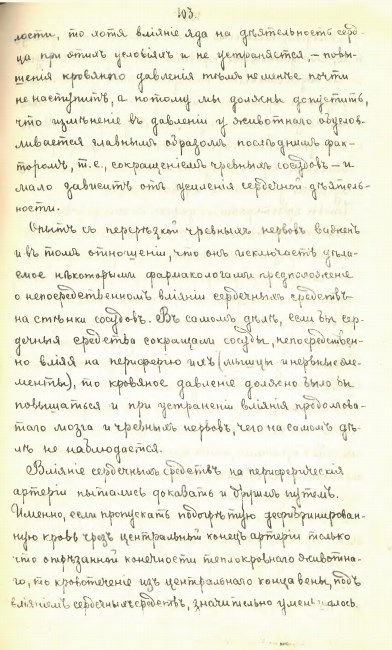 103.
лости, то хотя влiянiе яда на дѣятельность серд-
ца при этихъ условiяхъ и не устраняется, – повы-
шенiя кровяного давленiя тѣмъ не менѣе почти
не наступитъ, а потому мы должны допустить,
что измѣненiе въ давленiи у животнаго обуслов-
ливается главнымъ образомъ послѣднимъ фак-
торомъ, т. е., сокращенiемъ чревныхъ сосудовъ – и
мало зависитъ отъ усиленiя сердечной дѣятель-
ности.
Опытъ съ перерѣзкой чревныхъ нервовъ важенъ
и въ томъ отношенiи, что онъ исключаетъ дѣла-
емое нѣкоторыми фармакологами предположенiе
о непосредственномъ влiянiи сердечныхъ средствъ
на стѣнки сосудовъ. Въ самомъ дѣлѣ, если бы сер-
дечныя средства сокращали сосуды, непосредствен-
но влiяя на периферiю ихъ (мышцы и нервные эле-
менты), то кровяное давленiе должно было бы
повышаться и при устраненiи влiянiя продолгова-
таго мозга и чревныхъ нервовъ, чего на самомъ дѣ-
лѣ не наблюдается.
Влiянiе сердечныхъ средствъ на периферическiя
артерiи пытались доказать и другимъ путемъ.
Именно, если пропускать подогрѣтую дефибринирован-
ную кровь чрезъ центральный конецъ артерiи только
что отрѣзанной конечности теплокровнаго животна-
го, то кровотеченiе изъ центральнаго конца вены, подъ
влiянiемъ сердечныхъ средствъ, значительно уменьшалось.